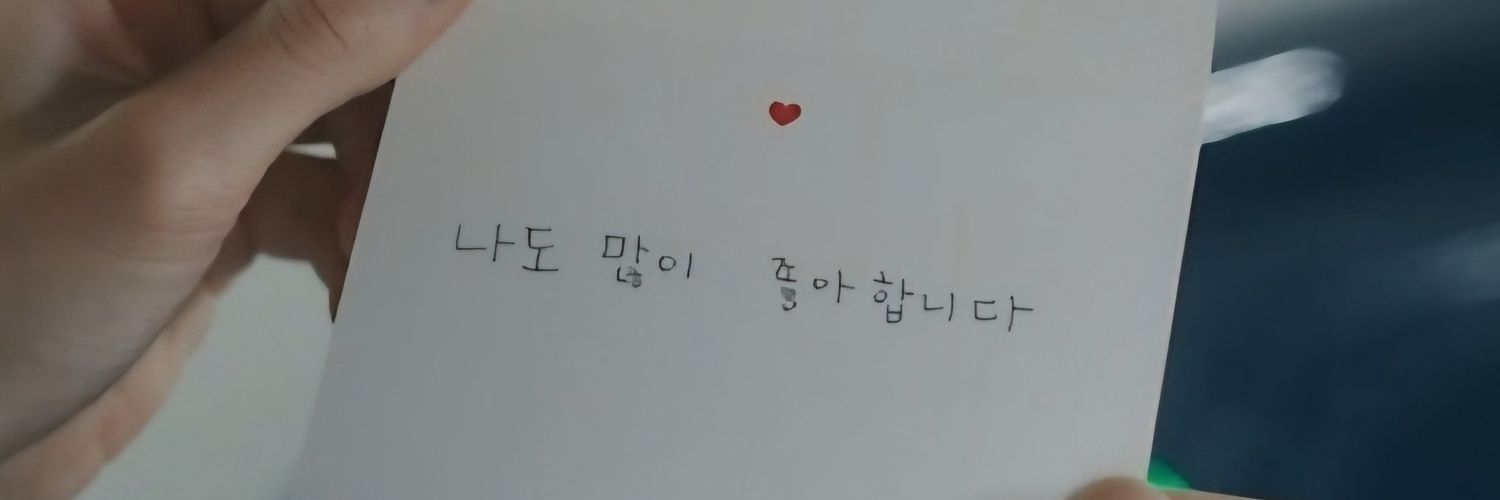 나도 많이 좋아합니다